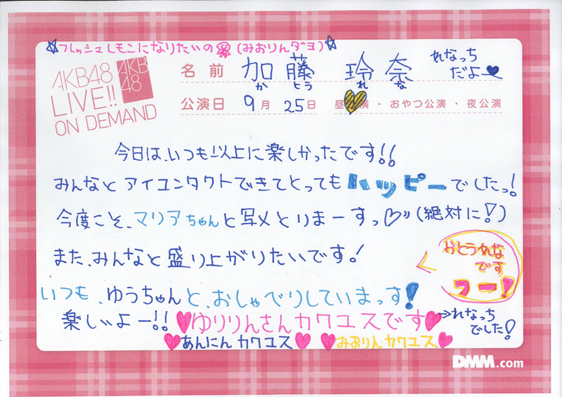 ☆フレッシュレモンになりたいの(みおりんダヨ)☆
AKB48
LIVE!!
ON DEMAND
AKB
48
名前 加藤 玲奈
かとう れな
れなっち
だよ
公演日 9月25日 昼公演・おやつ公演・夜公演
今日は、いつも以上に楽しかったです!!
みんなと アイコンタクトできてとっても ハッピーでしたっ!
今度こそ、マリアちゃんと写メとりまーすっ♡(絶対に!)
また、みんなと盛り上がりたいです!
おとうれな
です
フー!
いつも、ゆうちゃんと、おしゃべりしていまっす!
→れなっち
でした!
楽しいよー!!♥ゆりりんさんカワユスです♥
♥あんにんカワユス♥ ♥みおりんカワユス♥
DMM.com